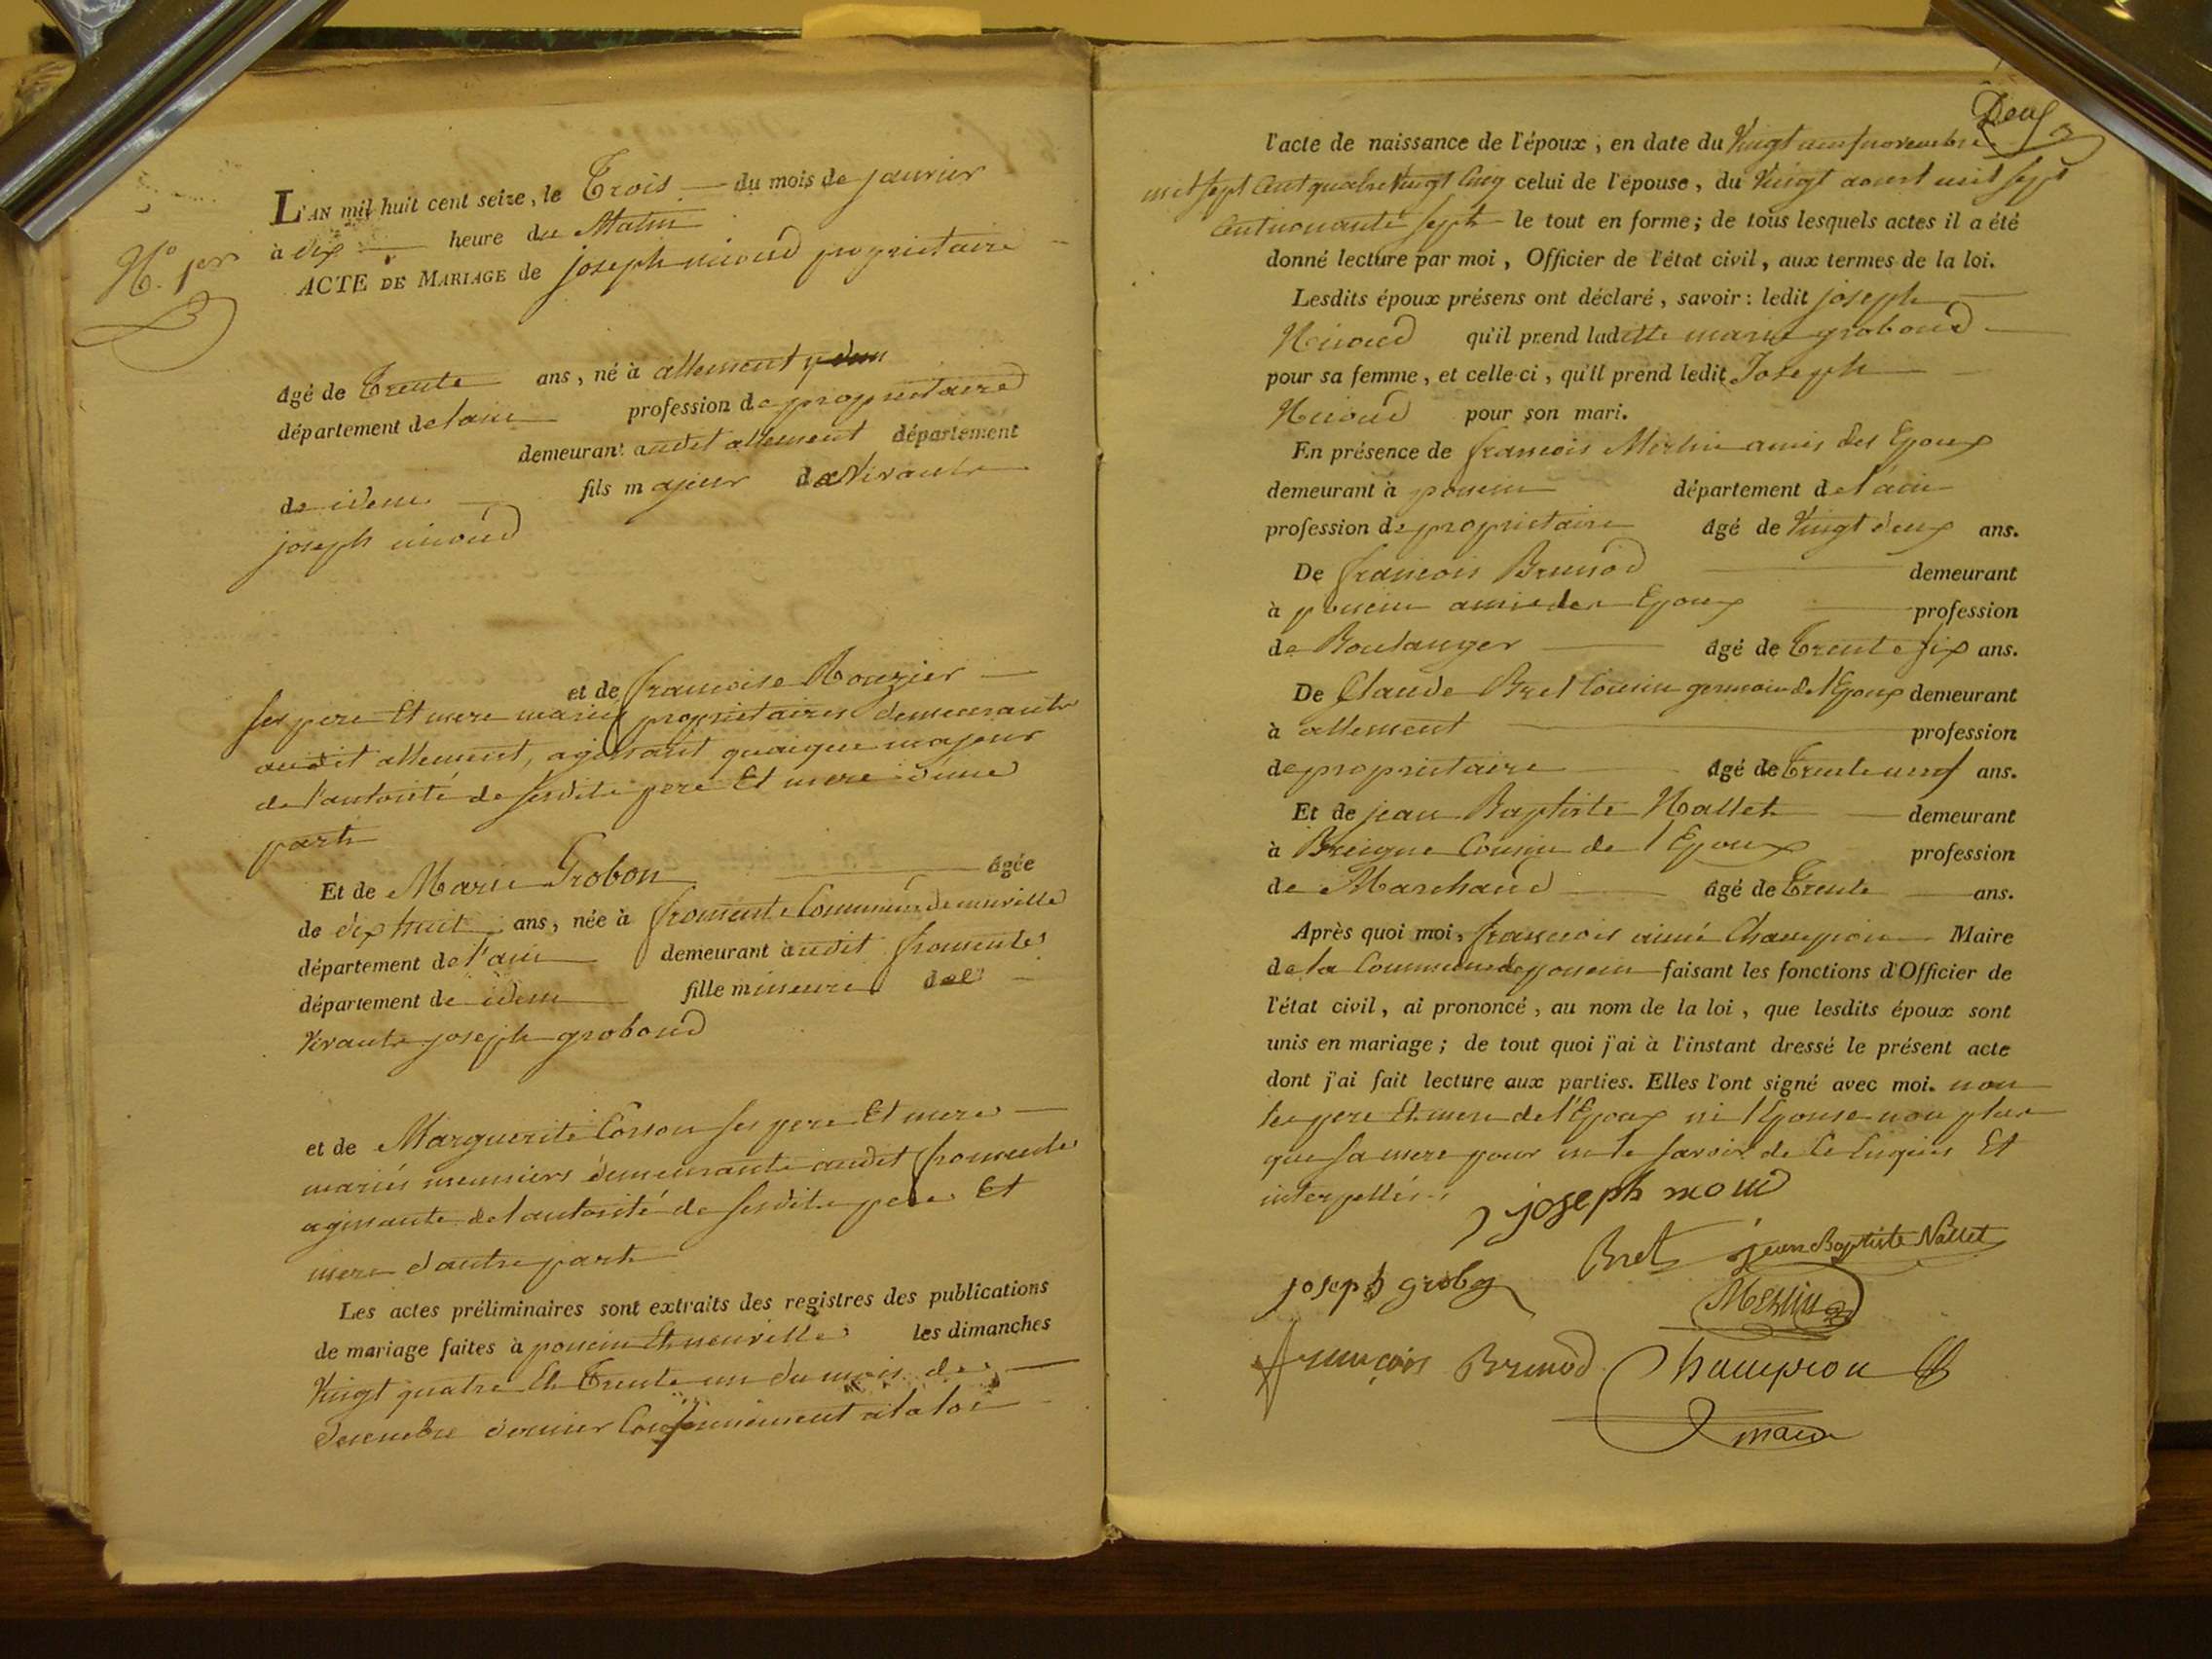 N.o 1.er
L'AN mil huit cent seize, le Trois du mois de janvier
à dix heure du Matin
ACTE DE MARIAGE de joseph nioud proprietaire
âgé de Trente ans, né à allement
département de lain profession de proprietaire
demeurant audit allement département
de idem fils majeur de vivants
joseph nioud
et de francoise
ses pere et mere mariés proprietaires demeurants
audit allement, agissant quoique majeur
de l'autorité de sesdits pere Et mere d'une
part
Et de Marie Grobon âgée
de dix huit ans, née à fromente Commune de neuville
département de l'ain demeurant audit fromente
département de idem fille mineure de
vivants joseph groboud
et de Marguerite Cosson ses pere Et mere
mariés meuniers demeurants audit fromente
agissante de l'autorité de sesdits pere Et
mere d'autre part
Les actes préliminaires sont extraits des registres des publications
de mariage faites à poncin Et neuville les dimanches
Vingt quatre Et Trente un du mois de
decembre dernier Conformément à la loi
Deux
l'acte de naissance de l'époux, en date du Vingt neuf novembre
mil sept Cent quatre Vingt Cinq celui de l'épouse, du Vingt aoust mil sept
Cent nonante sept le tout en forme; de tous lesquels actes il a été
donné lecture par moi, Officier de l'état civil, aux termes de la loi.
Lesdits époux présens ont déclaré, savoir: ledit joseph
Nioud qu'il prend laditte marie groboud
pour sa femme, et celle-ci, qu'il prend ledit Joseph
Nioud pour son mari.
En présence de francois Merlin amis des Epoux
demeurant à poncin département de l'ain
profession de proprietaire âgé de Vingt deux ans.
De francois Brunod demeurant
à poncin amis des Epoux profession
de Boulanger âgé de Trente six ans.
De Claude Bret Cousin germain de l'Epoux demeurant
à allement profession
de proprietaire âgé de Trente neuf ans.
Et de jean Baptiste Nallet demeurant
à Cousin de l'Epoux profession
de Marchand âgé de Trente ans.
Après quoi moi, francois aimé Champion Maire
de la Commune de poncin faisant les fonctions d'Officier de
l'état civil, ai prononcé, au nom de la loi, que lesdits époux sont
unis en mariage; de tout quoi j'ai à l'instant dressé le présent acte
dont j'ai fait lecture aux parties. Elles l'ont signé avec moi. non
les pere Et mere de l'Epoux ni l'Epouse non plus
que sa mere pour ne le savoir de Ce Enquis Et
interpellés
joseph nioud
Bret jean Baptiste Nallet
joseph grobon
Merlin
françois Brunod Champion
maire